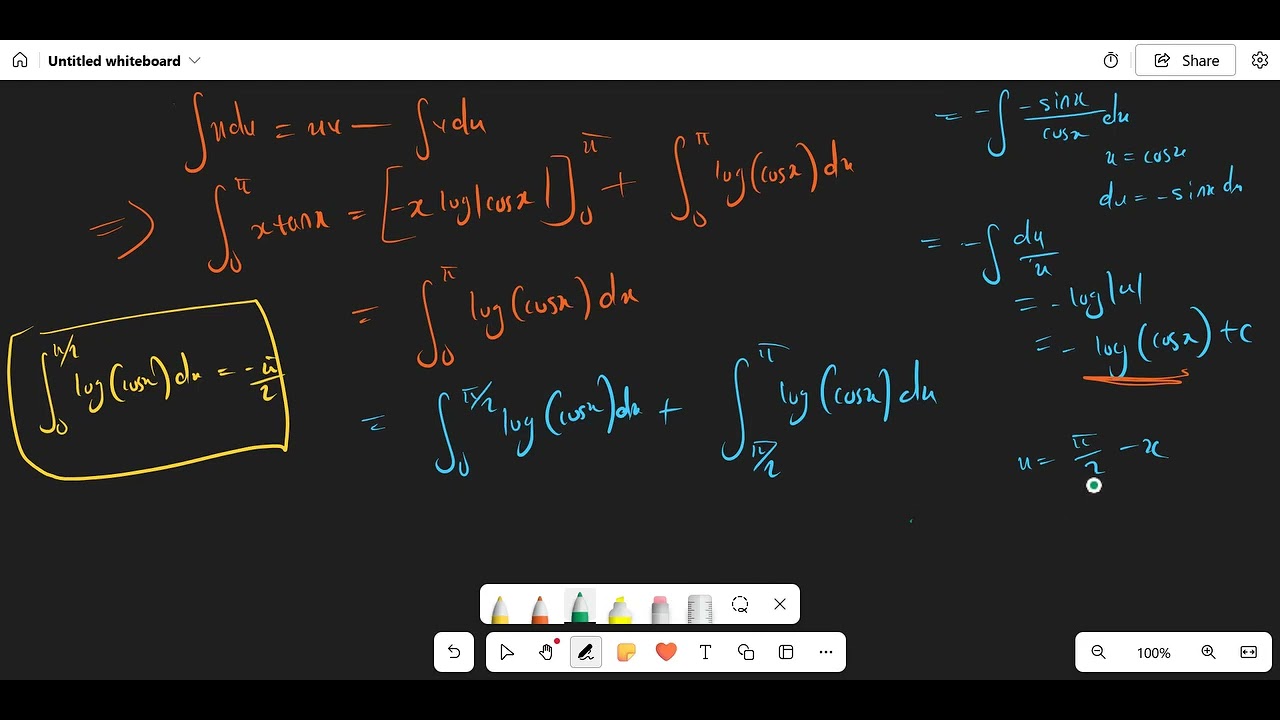 Untitled whiteboard
Share
∫u dv = uv — ∫v du
=> ∫₀^π x tan x = [-x log|cos x|]₀^π + ∫₀^π log(cos x) dx
= ∫₀^π log(cos x) dx
= ∫₀^π/2 log(cos x) dx + ∫π/2^π log(cos x) dx
∫₀^π/2 log(cos x) dx = -π/2
= -∫ -sin x/cos x dx
u = cos x
du = -sin x dx
= -∫ du/u
= -log|u|
= - log(cos x) + c
u = π/2 - x
T
100%